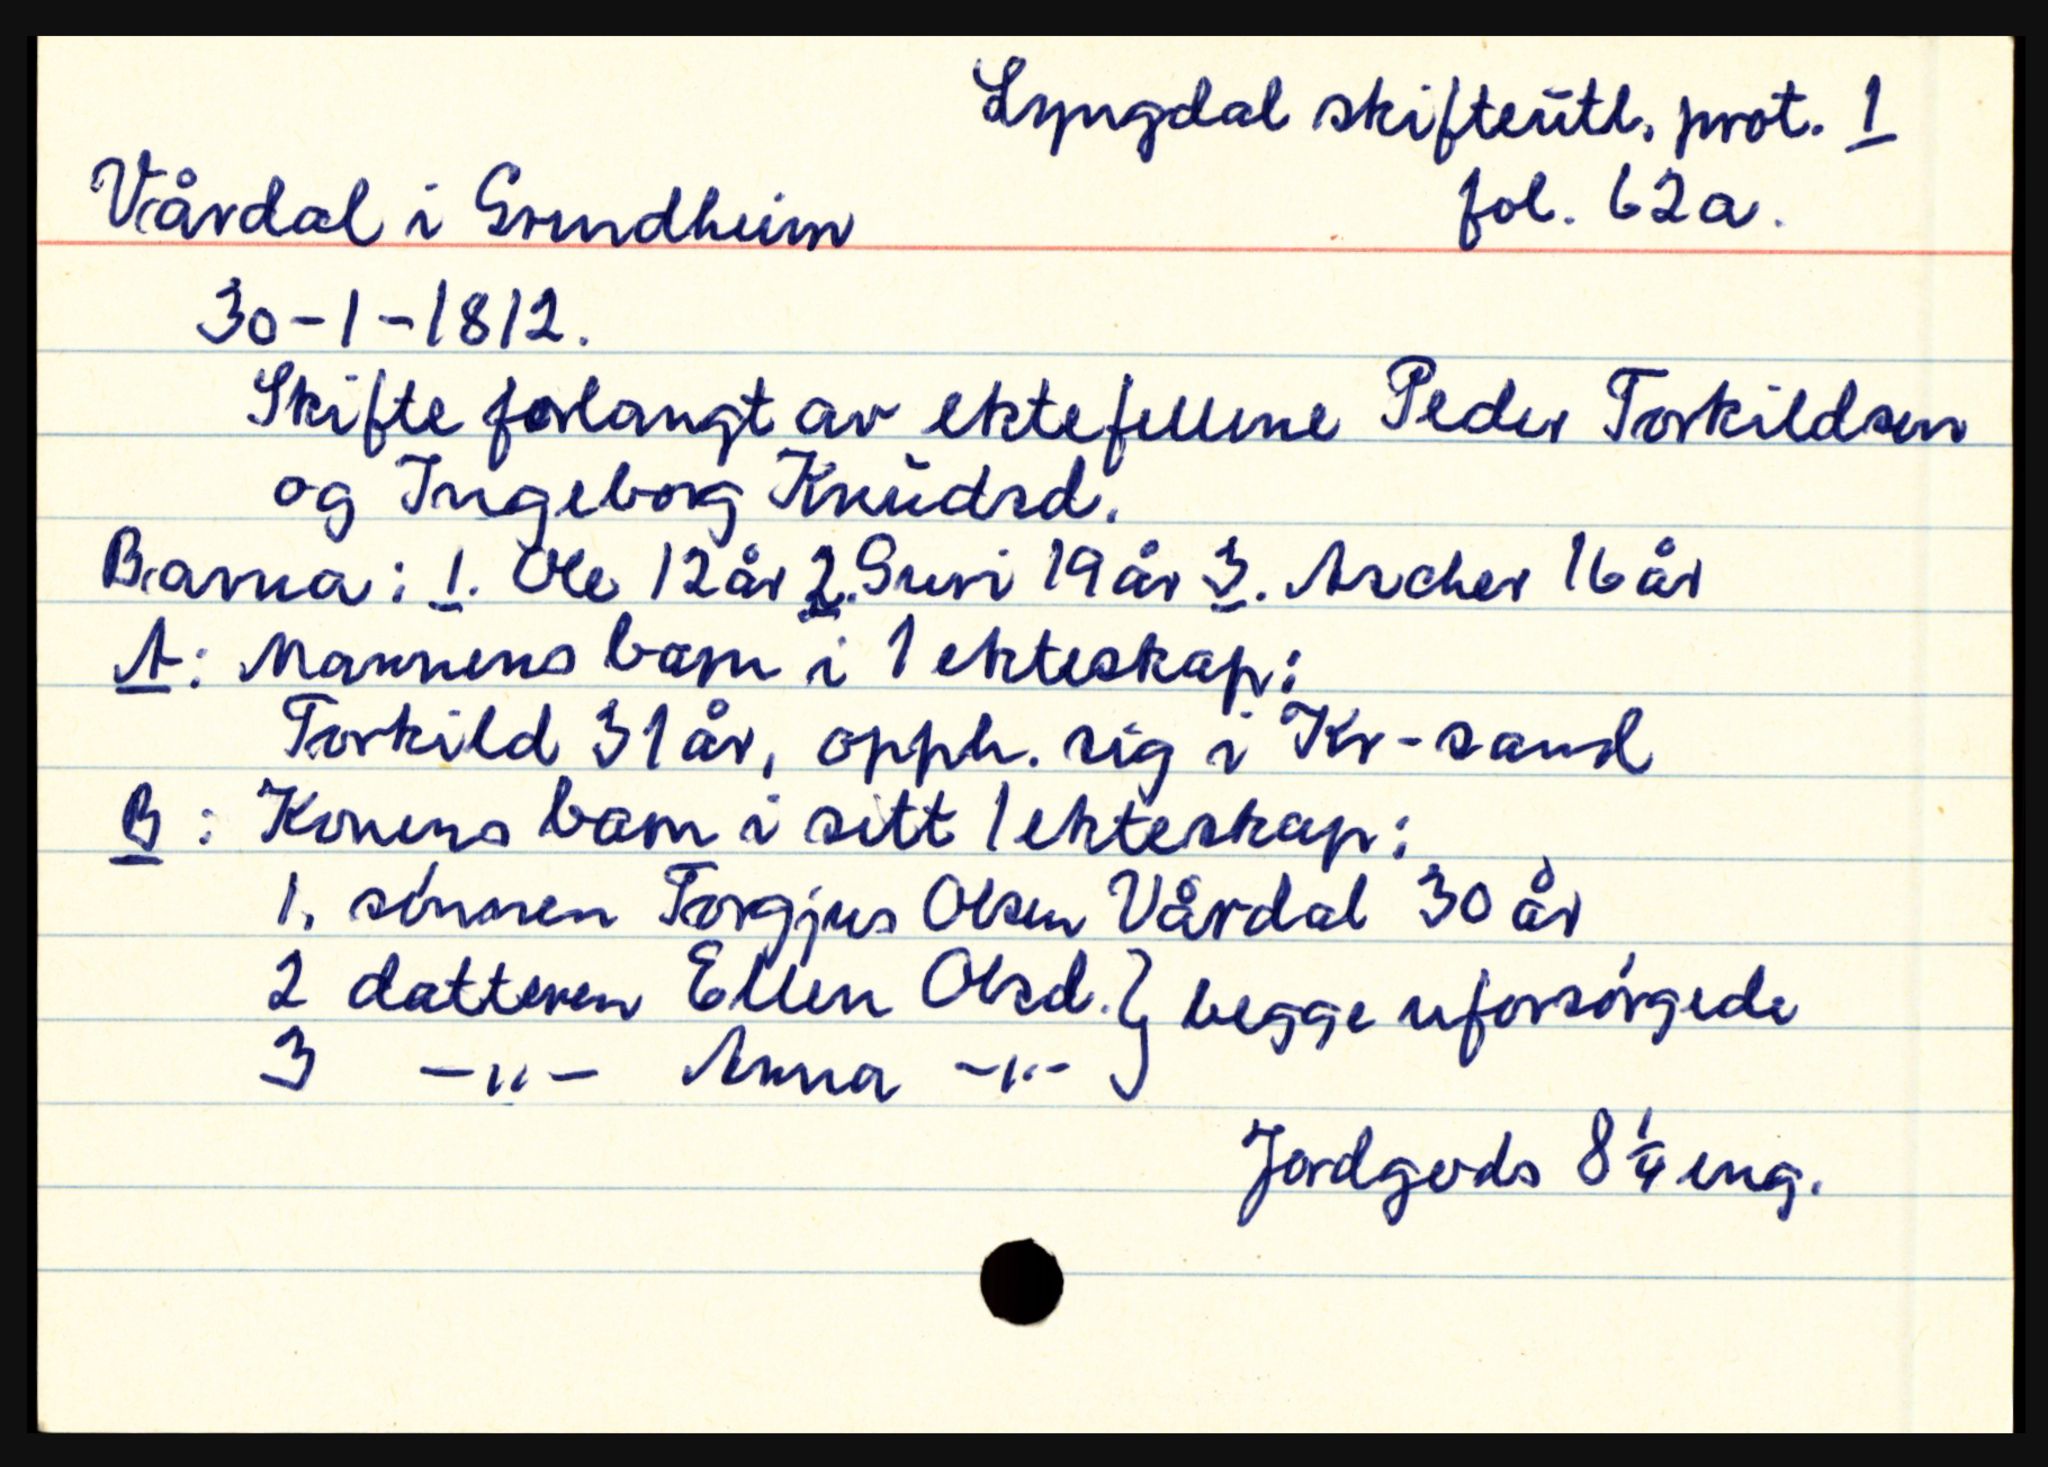 Lyngdal skifteutl. prot. 1
fol. 62a.
Vårdal i Grindheim
30-1-1812.
Skifte forlangt av ektefellene Peder Torkildsen
og Ingeborg Knudsd.
Barna: 1. Ole 12 år 2. Guri 19 år 3. Ascher 16 år
A: Mannens barn i 1 ekteskap:
Torkild 31 år, opph. sig i Kr-sand
B: Konens barn i sitt 1 ekteskap:
1. sönnen Torgjus Olsen Vårdal 30 år
2 datteren Ellen Olsd. } begge uforsörgede
3 -"- Anna -"-
Jordgods 8 1/4 eng.